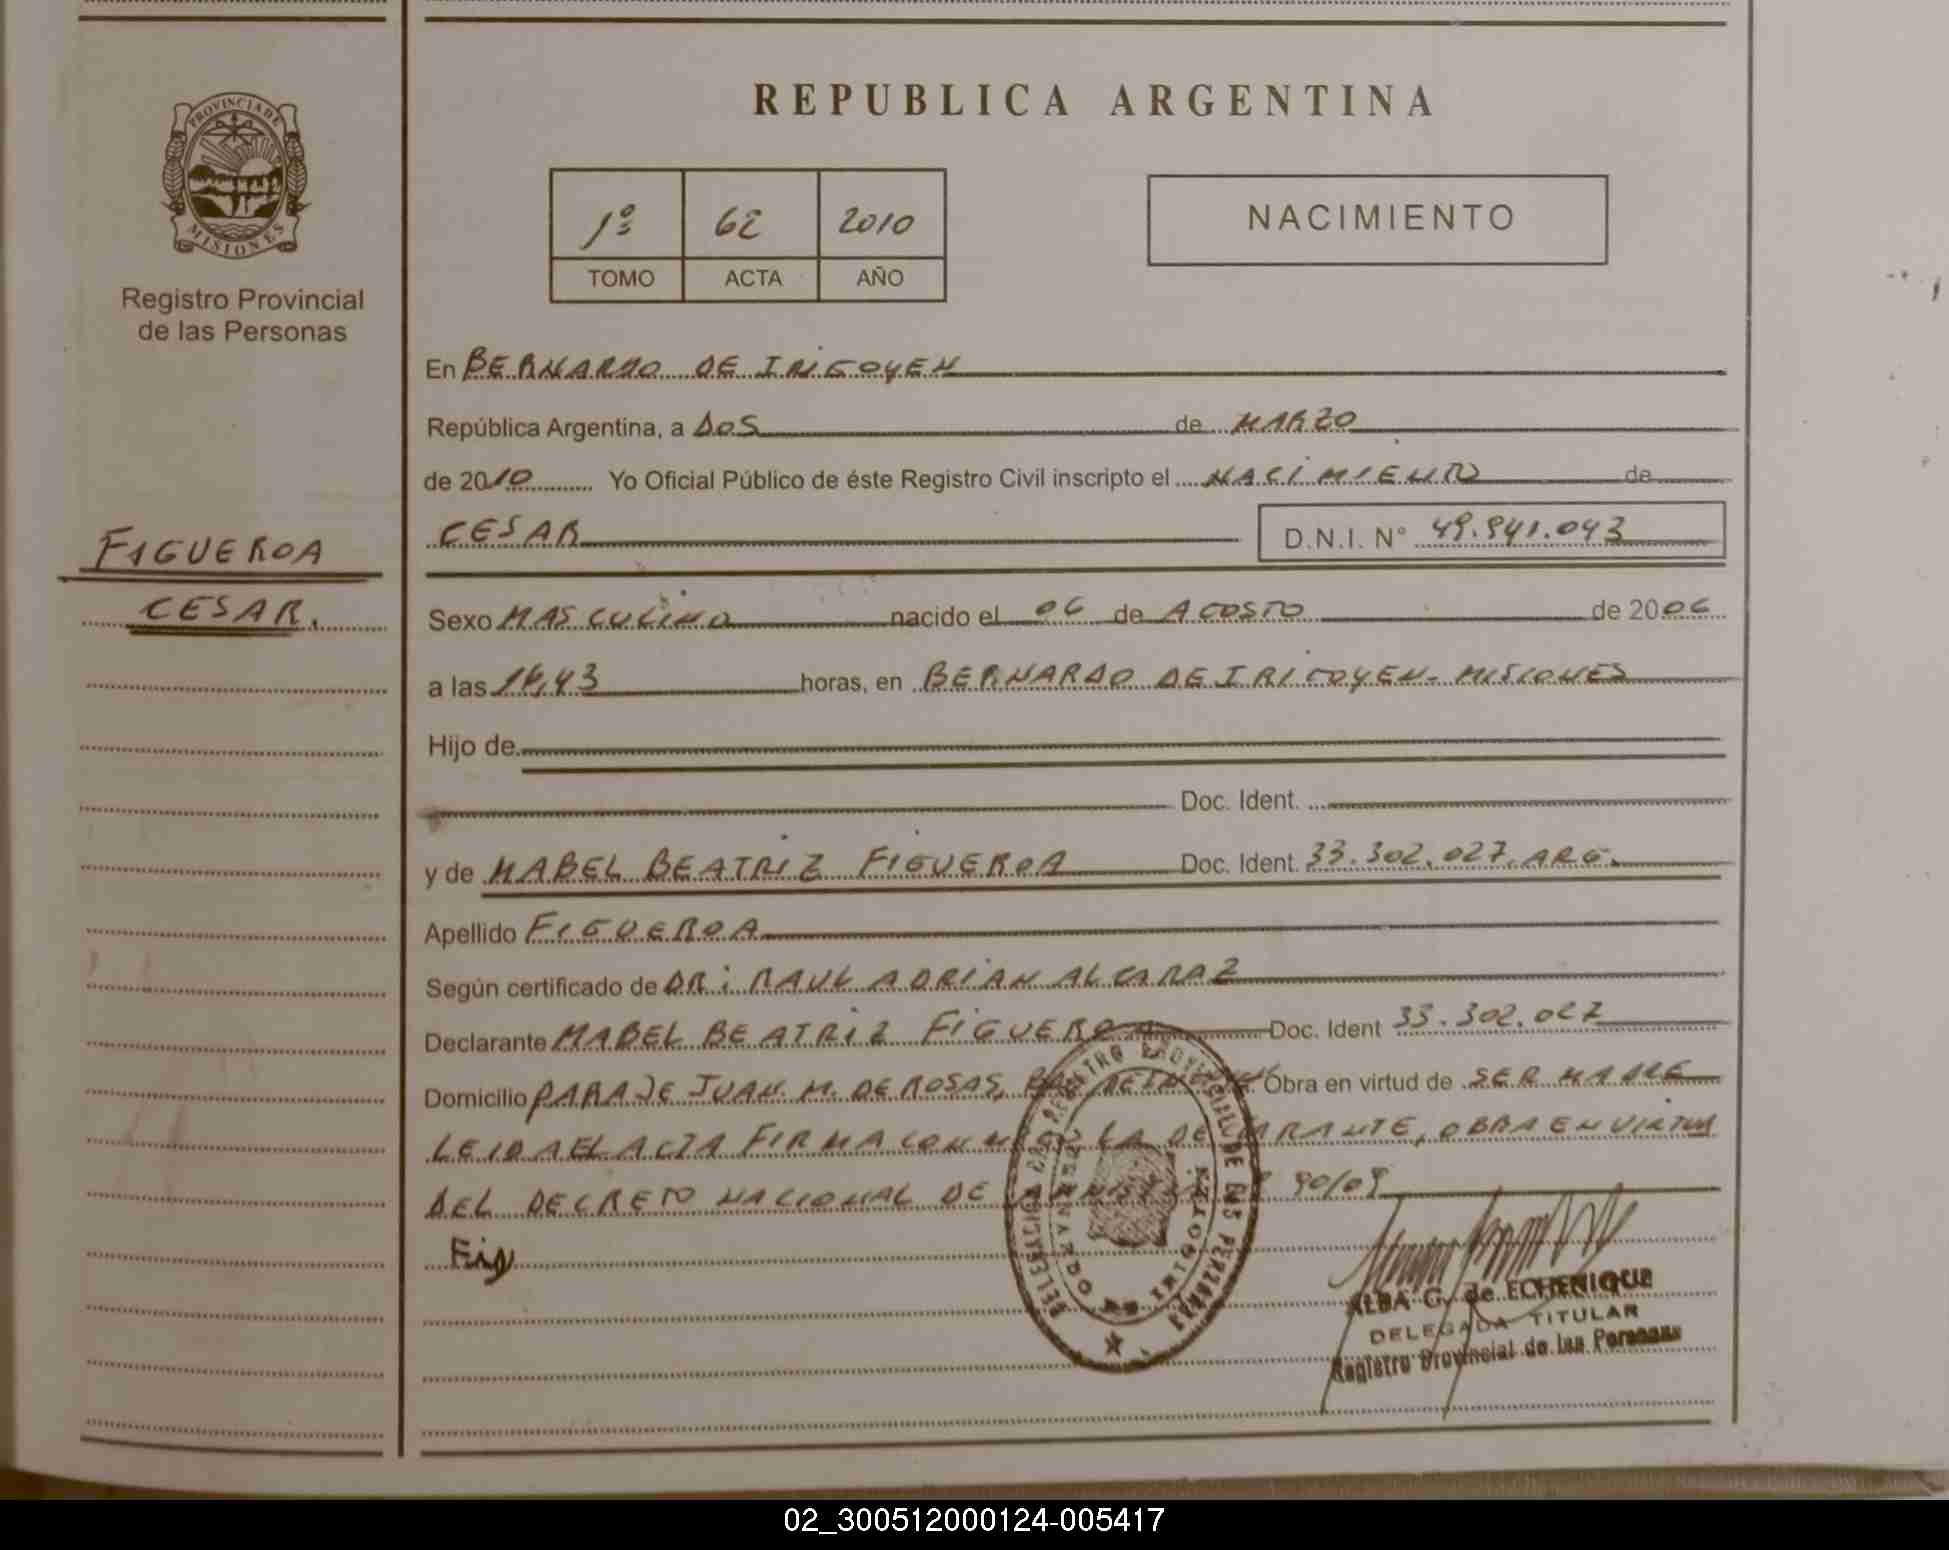 PROVINCIA DE
MISIONES
Registro Provincial
de las Personas
FIGUEROA
CESAR.
REPUBLICA ARGENTINA
1º 62 2010
TOMO ACTA AÑO
NACIMIENTO
En BERNARDO DE IRIGOYEN
República Argentina, a DOS de MARZO
de 2010 Yo Oficial Público de éste Registro Civil inscripto el NACIMIENTO de
CESAR D.N.I. N° 49.941.043
Sexo MASCULINO nacido el 06 de AGOSTO de 2006
a las 14,43 horas, en BERNARDO DE IRIGOYEN - MISIONES
Hijo de
Doc. Ident.
y de MABEL BEATRIZ FIGUEROA Doc. Ident. 33.302.027. ARG.
Apellido FIGUEROA
Según certificado de DR: RAUL ADRIAN ALCARAZ
Declarante MABEL BEATRIZ FIGUEROA Doc. Ident 33.302.027
Domicilio PARAJE JUAN. M. DE ROSAS, Obra en virtud de SER MADRE
LEIDA EL ACTA FIRMA CONMIGO LA DECLARANTE, OBRA EN VIRTUD
DEL DECRETO NACIONAL DE 90/09
Fig
DELEGACION REGISTRO PROVINCIAL DE LAS PERSONAS
BERNARDO DE IRIGOYEN
ALBA G. de ECHENIQUE
DELEGADA TITULAR
Registro Provincial de las Personas
02_300512000124-005417